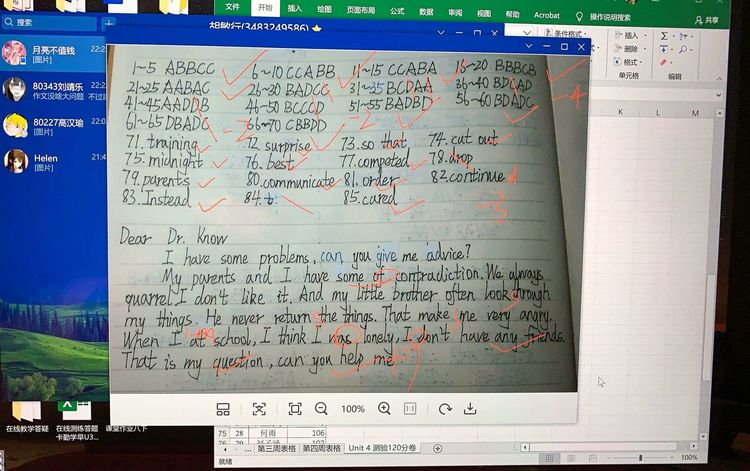 文件 开始 插入 页面布局 公式 数据 审阅 视图 帮助 Acrobat 操作说明搜索
共享
搜索
胡敏行(3483249586)
条件格式
插入
删除
格式
单元格
编辑
月亮不值钱 22:2
[图片]
80343刘婧乐 22:2
作文没啥大问题 不过
80227高汉瑜
[图片]
Helen 21:4
[图片]
1~5 ABBCC 6~10 CCABB 11~15 CCABA 16~20 BBBCB
21~25 AABAC 26~30 BADCC 31~35 BCDAA 36~40 BDCAD
41~45 AADDB 46~50 BCCCD 51~55 BADBD 56~60 BDADC -4
61~65 DBADC -2 66~70 CBBDD -2
71. training 72. surprise 73. so that 74. cut out
75. midnight 76. best 77. competed 78. drop
79. parents 80. communicate 81. order 82. continue d
83. Instead 84. 85. cared -3
Dear Dr. Know
I have some problems, can you give me advice?
My parents and I have some of contradiction. We always
quarrel. I don't like it. And my little brother often look through
my things. He never return the things. That make me very angry.
When I at school, I think I was lonely, I don't have any friends.
That is my question, can you help me
100%
1:1
K L M N
在线教学答疑
在线测练答题
卡勤学早U3...
课堂作业八下
75 28 何雨 106
第三周表格 第四周表格 Unit 4 测验120分卷
就绪
100%